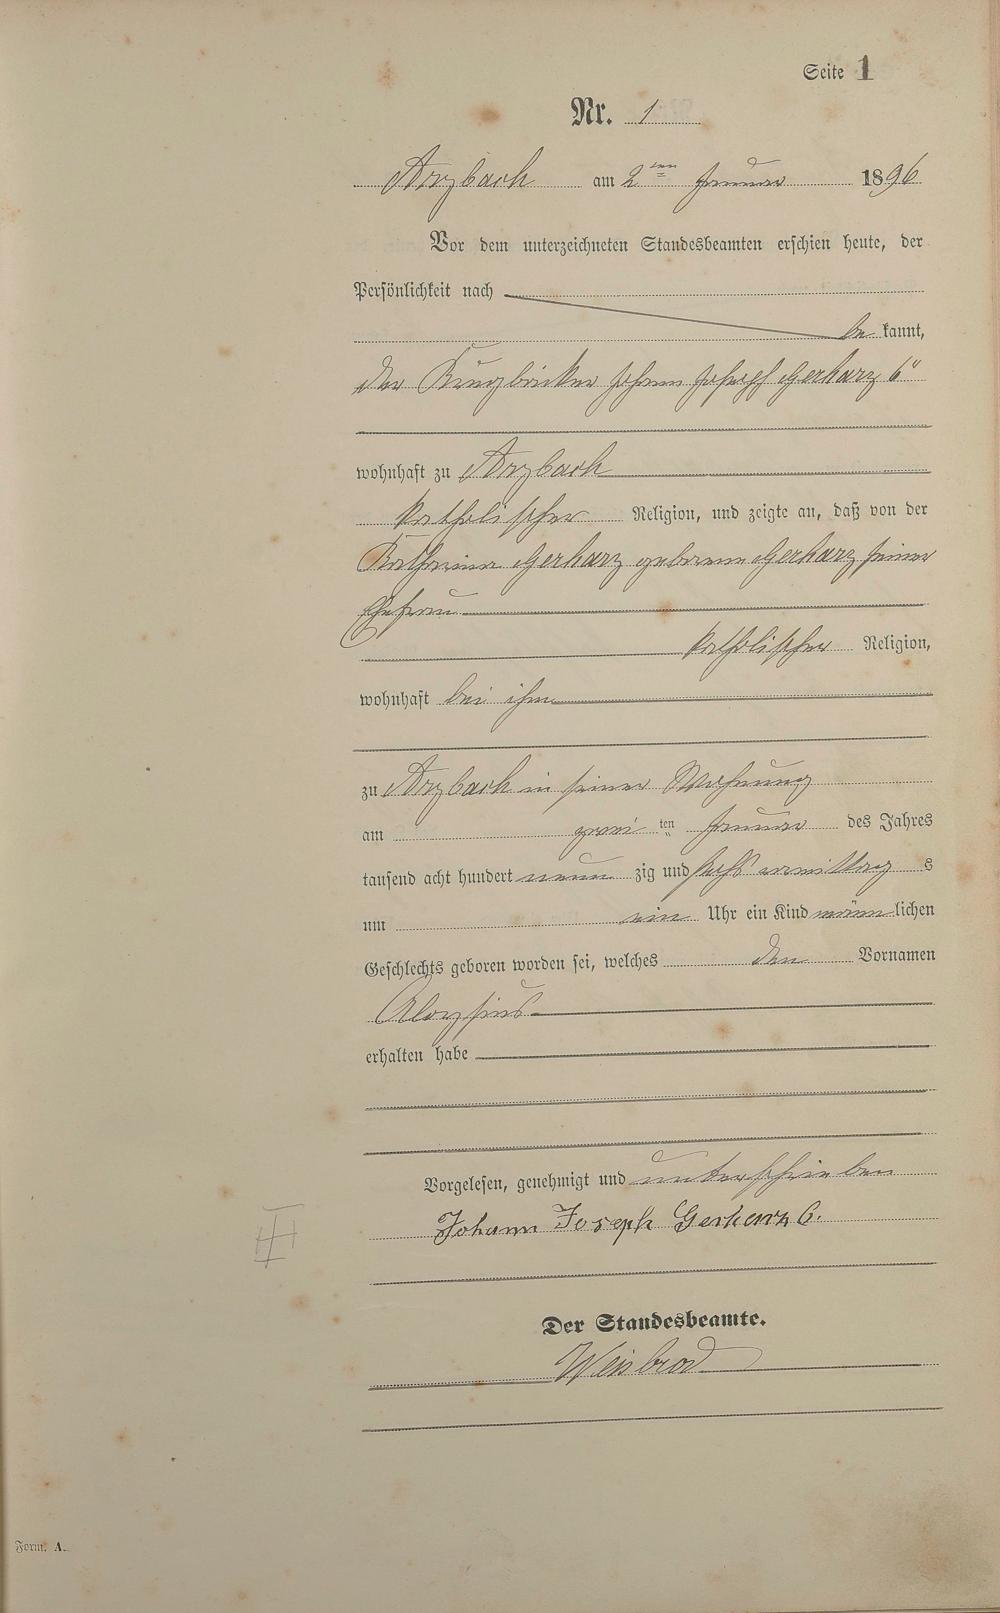 Seite 1
Nr. 1
Arzbach am 2ten Januar 1896
Vor dem unterzeichneten Standesbeamten erschien heute, der
Persönlichkeit nach
be kannt,
der Krugbäcker Johann Joseph Gerharz 6"
wohnhaft zu Arzbach
katholischer Religion, und zeigte an, daß von der
Katharina Gerharz geborene Gerharz seiner
Ehefrau
katholischer Religion,
wohnhaft bei ihm
zu Arzbach in seiner Wohnung
am zwei ten Januar des Jahres
tausend acht hundert neun zig und sechs vormittag s
um ein Uhr ein Kind männ lichen
Geschlechts geboren worden sei, welches den Vornamen
Aloysius
erhalten habe
Vorgelesen, genehmigt und unterschrieben
Johann Joseph Gerharz 6.
Der Standesbeamte.
Weinbrod
Form. A.